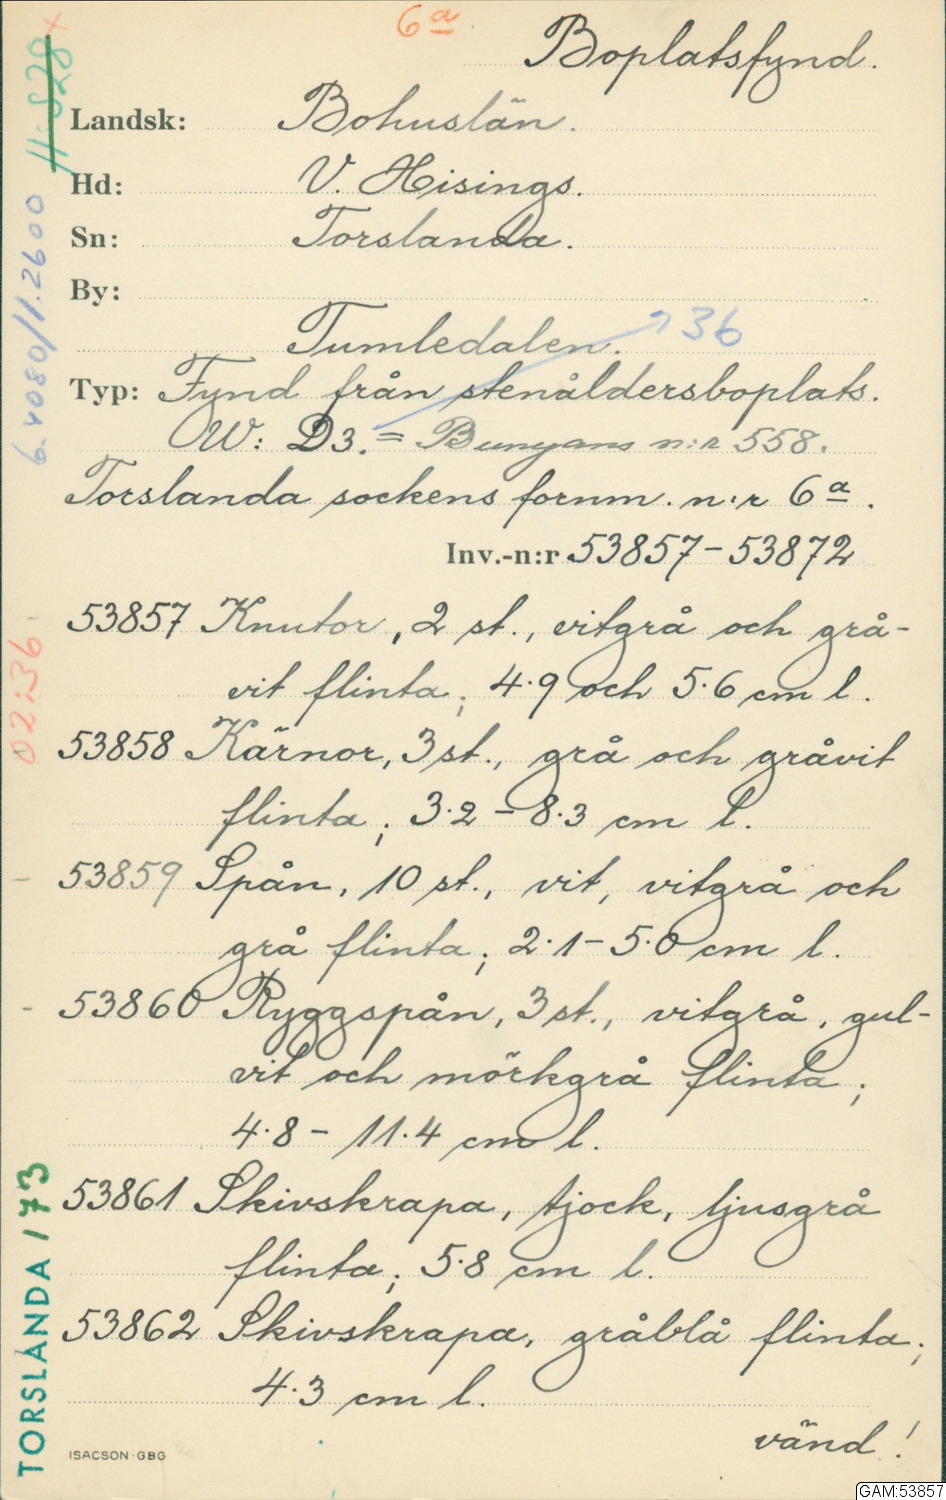 6a
Boplatsfynd.
Landsk: Bohuslän.
Hd: V. Hisings.
Sn: Torslanda.
By:
Tumledalen. 36
Typ: Fynd från stenåldersboplats.
W: D3. = Bunyans n:r 558.
Torslanda sockens fornm. n:r 6a.
Inv.-n:r 53857-53872
53857 Knutor, 2 st., vitgrå och grå-
vit flinta; 4.9 och 5.6 cm l.
53858 Kärnor, 3 st., grå och gråvit
flinta; 3.2-8.3 cm l.
53859 Spån, 10 st., vit, vitgrå och
grå flinta; 2.1-5.0 cm l.
53860 Ryggspån, 3 st., vitgrå, gul-
vit och mörkgrå flinta;
4.8-11.4 cm l.
53861 Skivskrapa, tjock, ljusgrå
flinta; 5.8 cm l.
53862 Skivskrapa, gråblå flinta;
4.3 cm l.
vänd!
ISACSON-GBG
6.4080/11.2600
02:36
TORSLANDA 173
GAM:53857